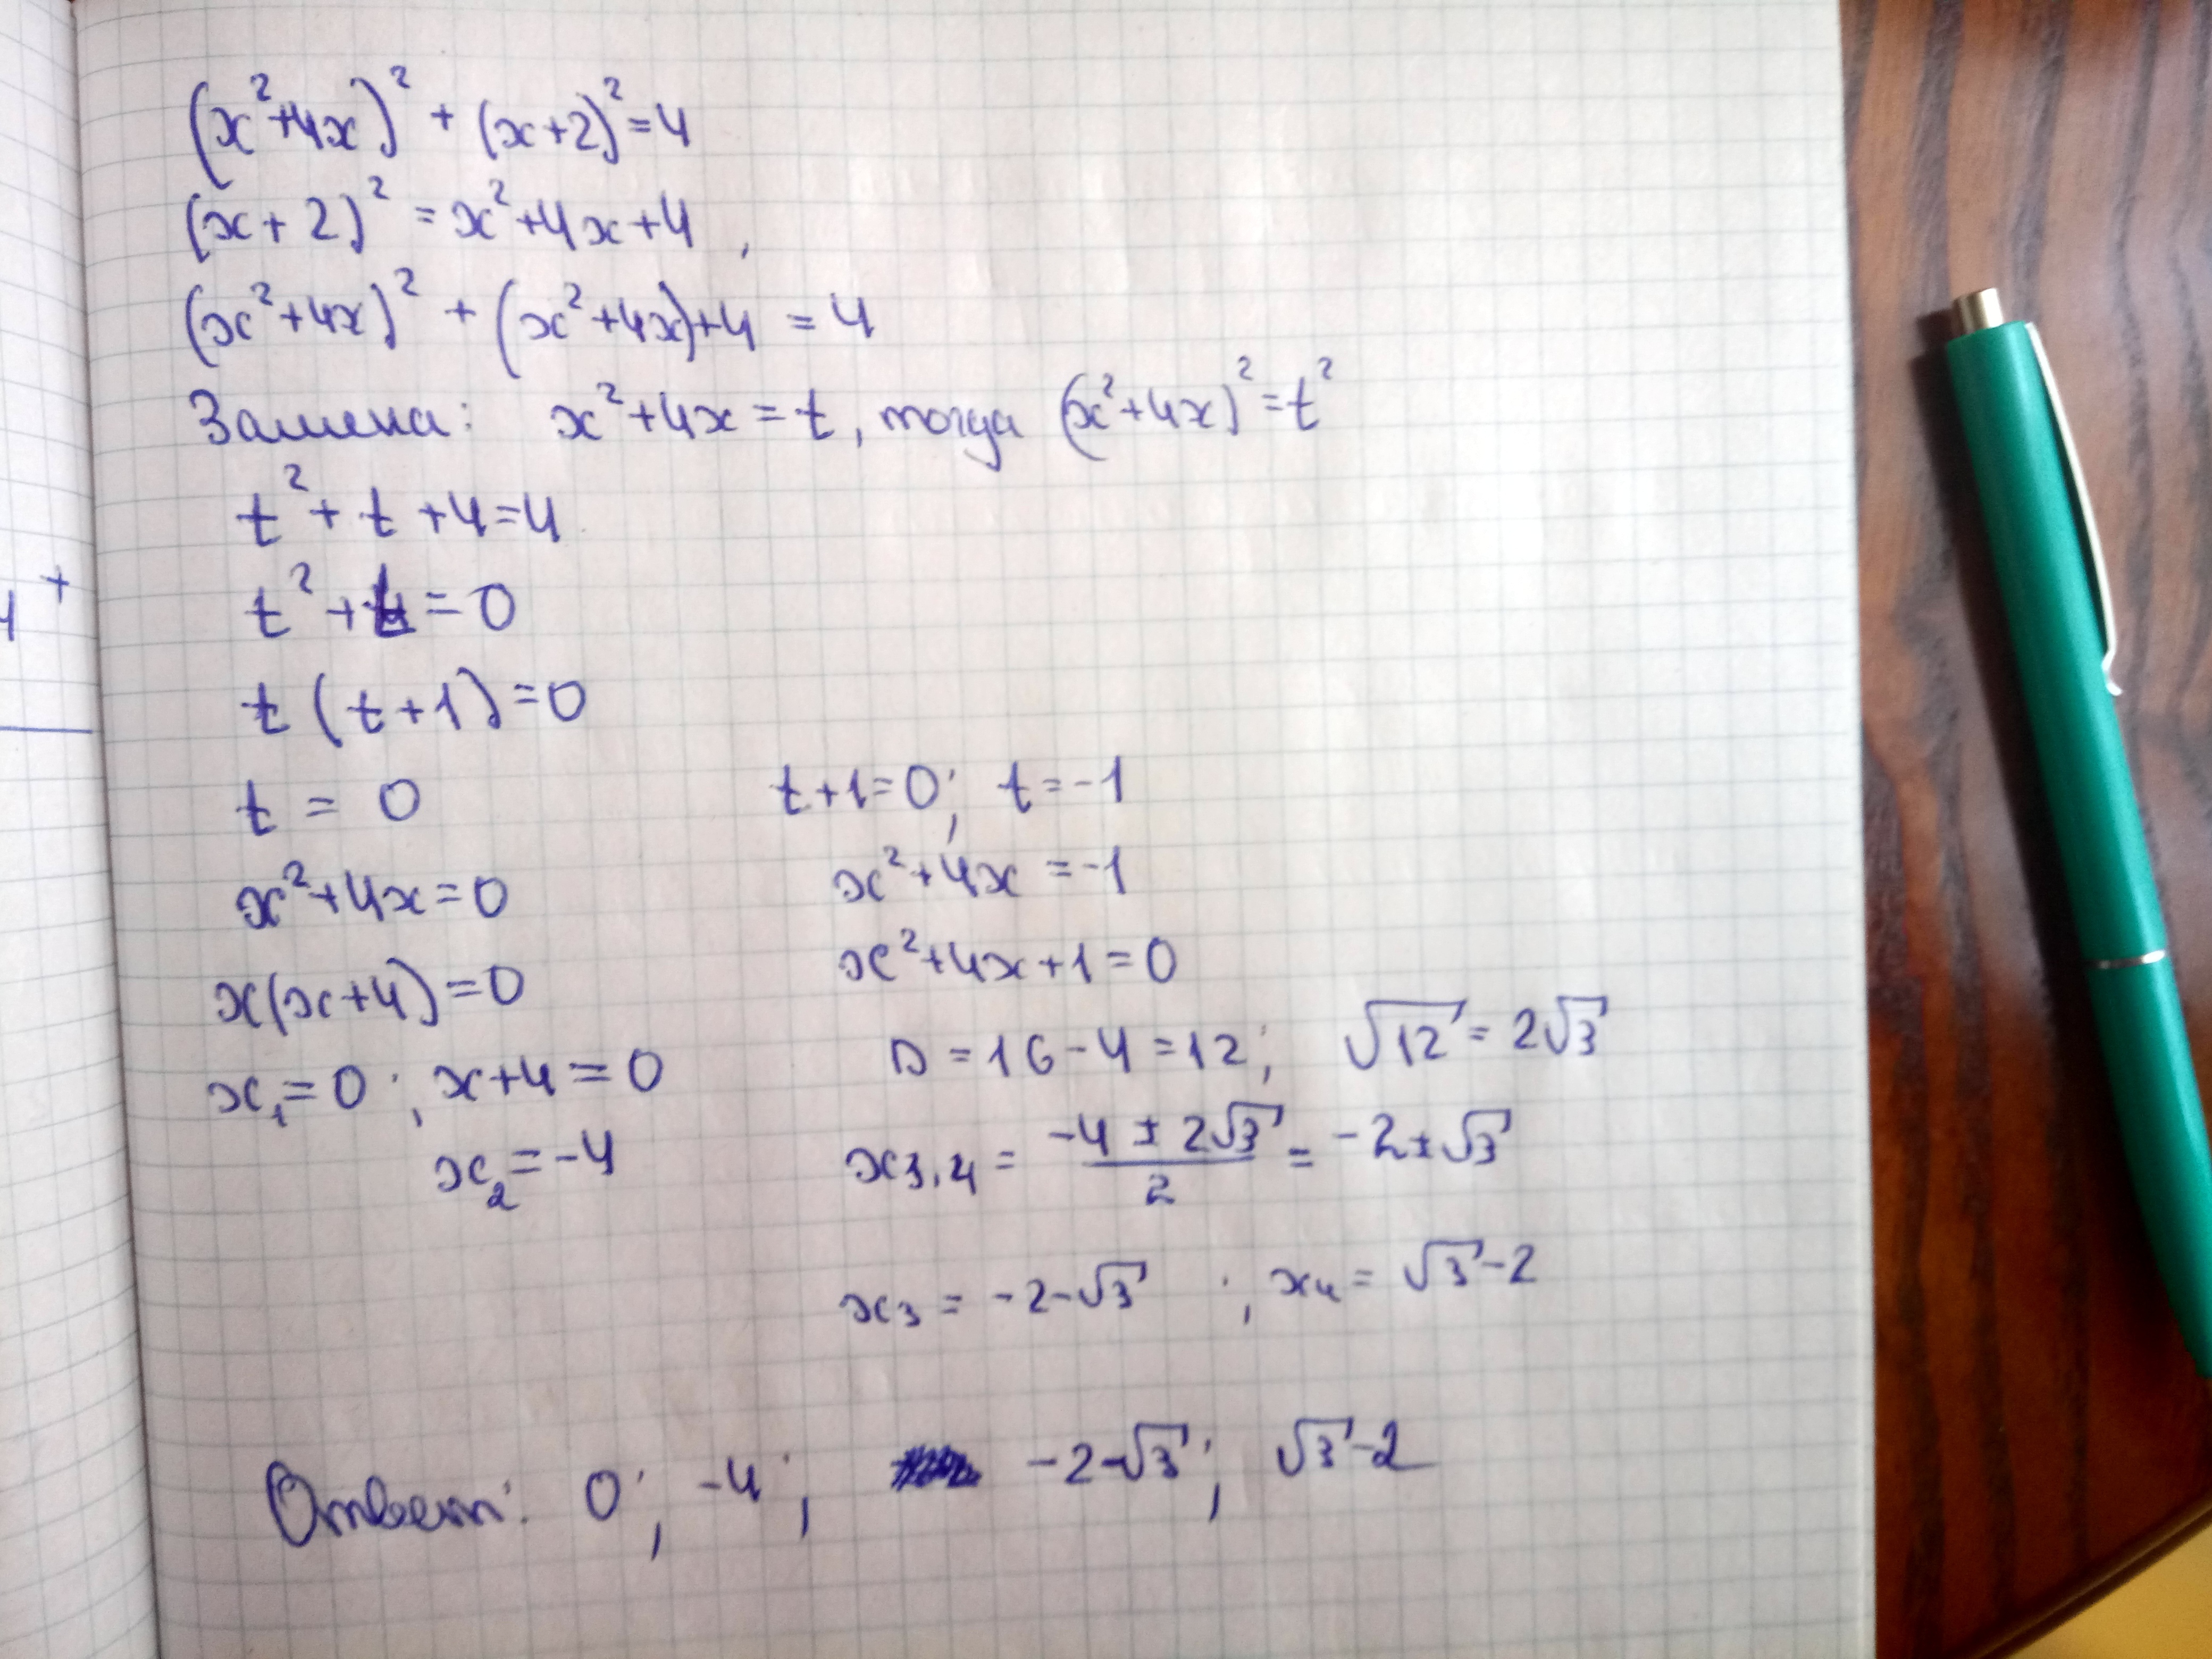 (x²+4x)² + (x+2)²=4
(x+2)² = x²+4x+4,
(x²+4x)² + (x²+4x)+4 = 4
Замена: x²+4x=t, тогда (x²+4x)²=t²
t²+t+4=4
t²+t=0
t(t+1)=0
t = 0
t+1=0; t=-1
x²+4x=0
x²+4x=-1
x(x+4)=0
x²+4x+1=0
x₁=0; x+4=0
D=16-4=12; √12=2√3
x₂=-4
x₃,₄ = (-4±2√3)/2 = -2±√3
x₃ = -2-√3; x₄ = √3-2
Ответ: 0; -4; -2-√3; √3-2